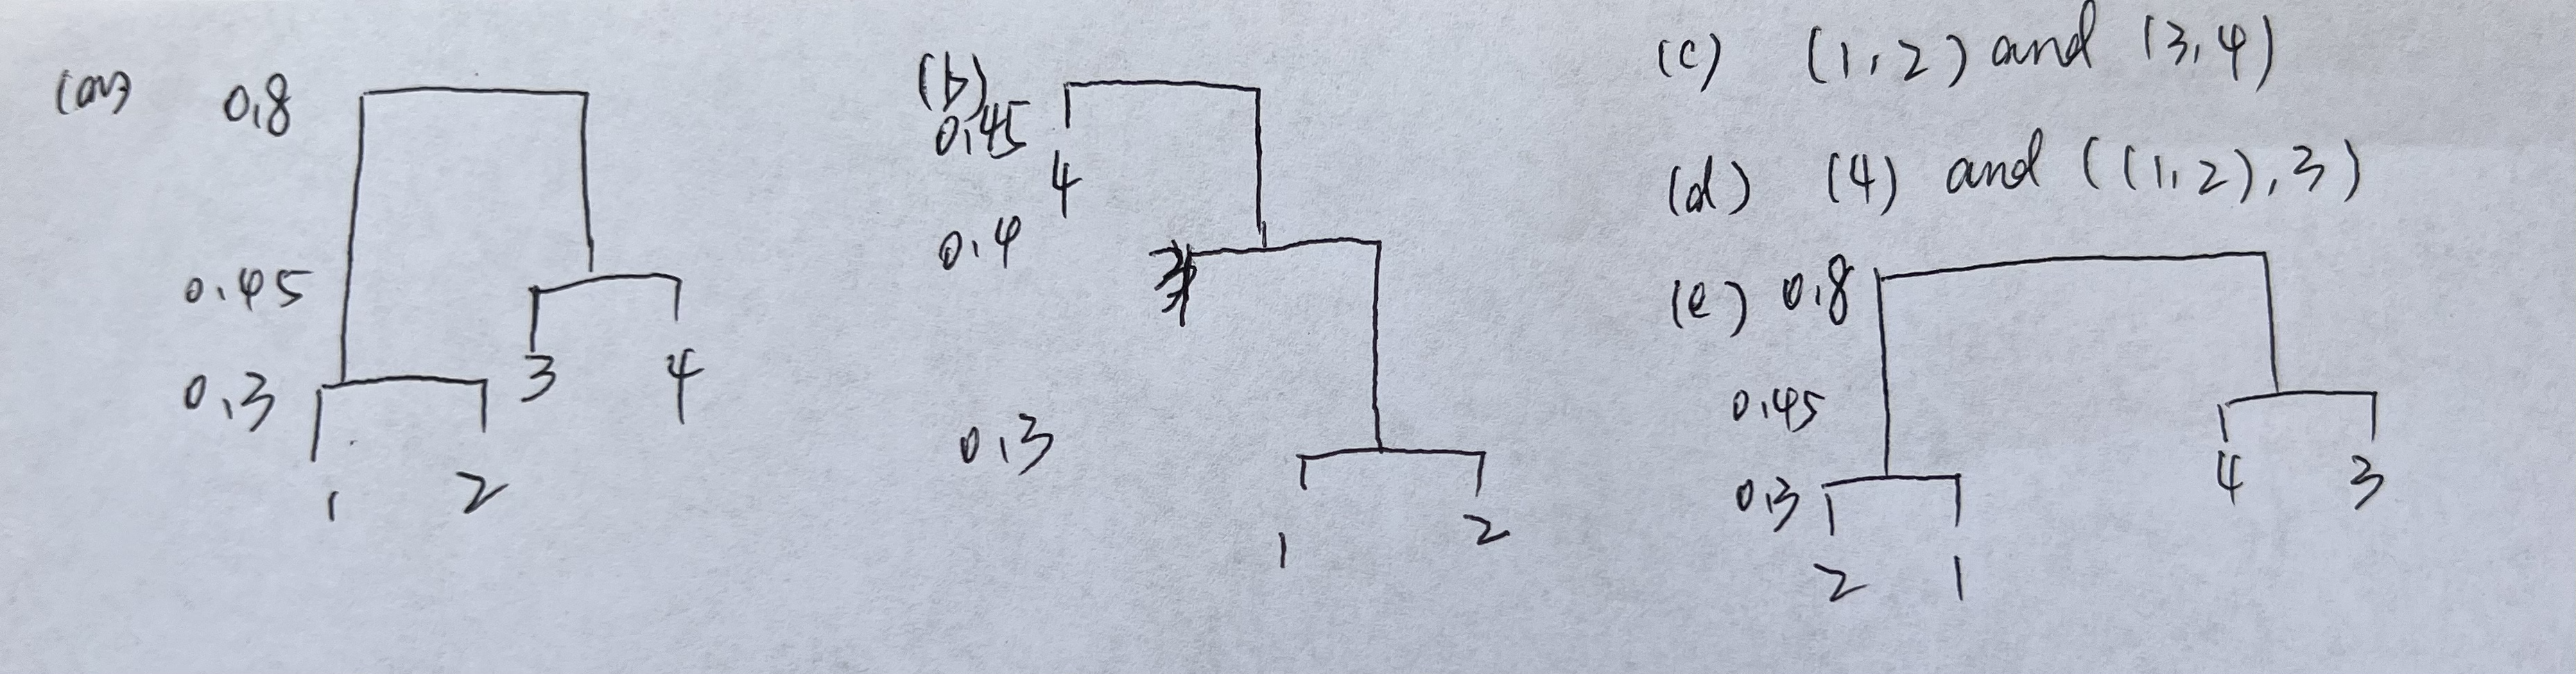 (a) 0.8
0.45
3 4
0.3
1 2
(b)
0.45
4
0.4
0.3
1 2
(c) (1,2) and (3,4)
(d) (4) and ((1,2),3)
(e) 0.8
0.45
4 3
0.3
2 1